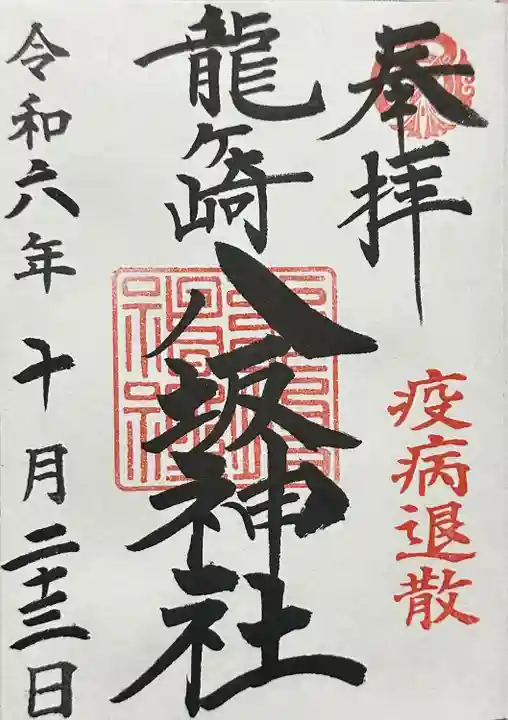 奉拝
疫病退散
龍ヶ崎
八坂神社
令和六年 十月二十三日